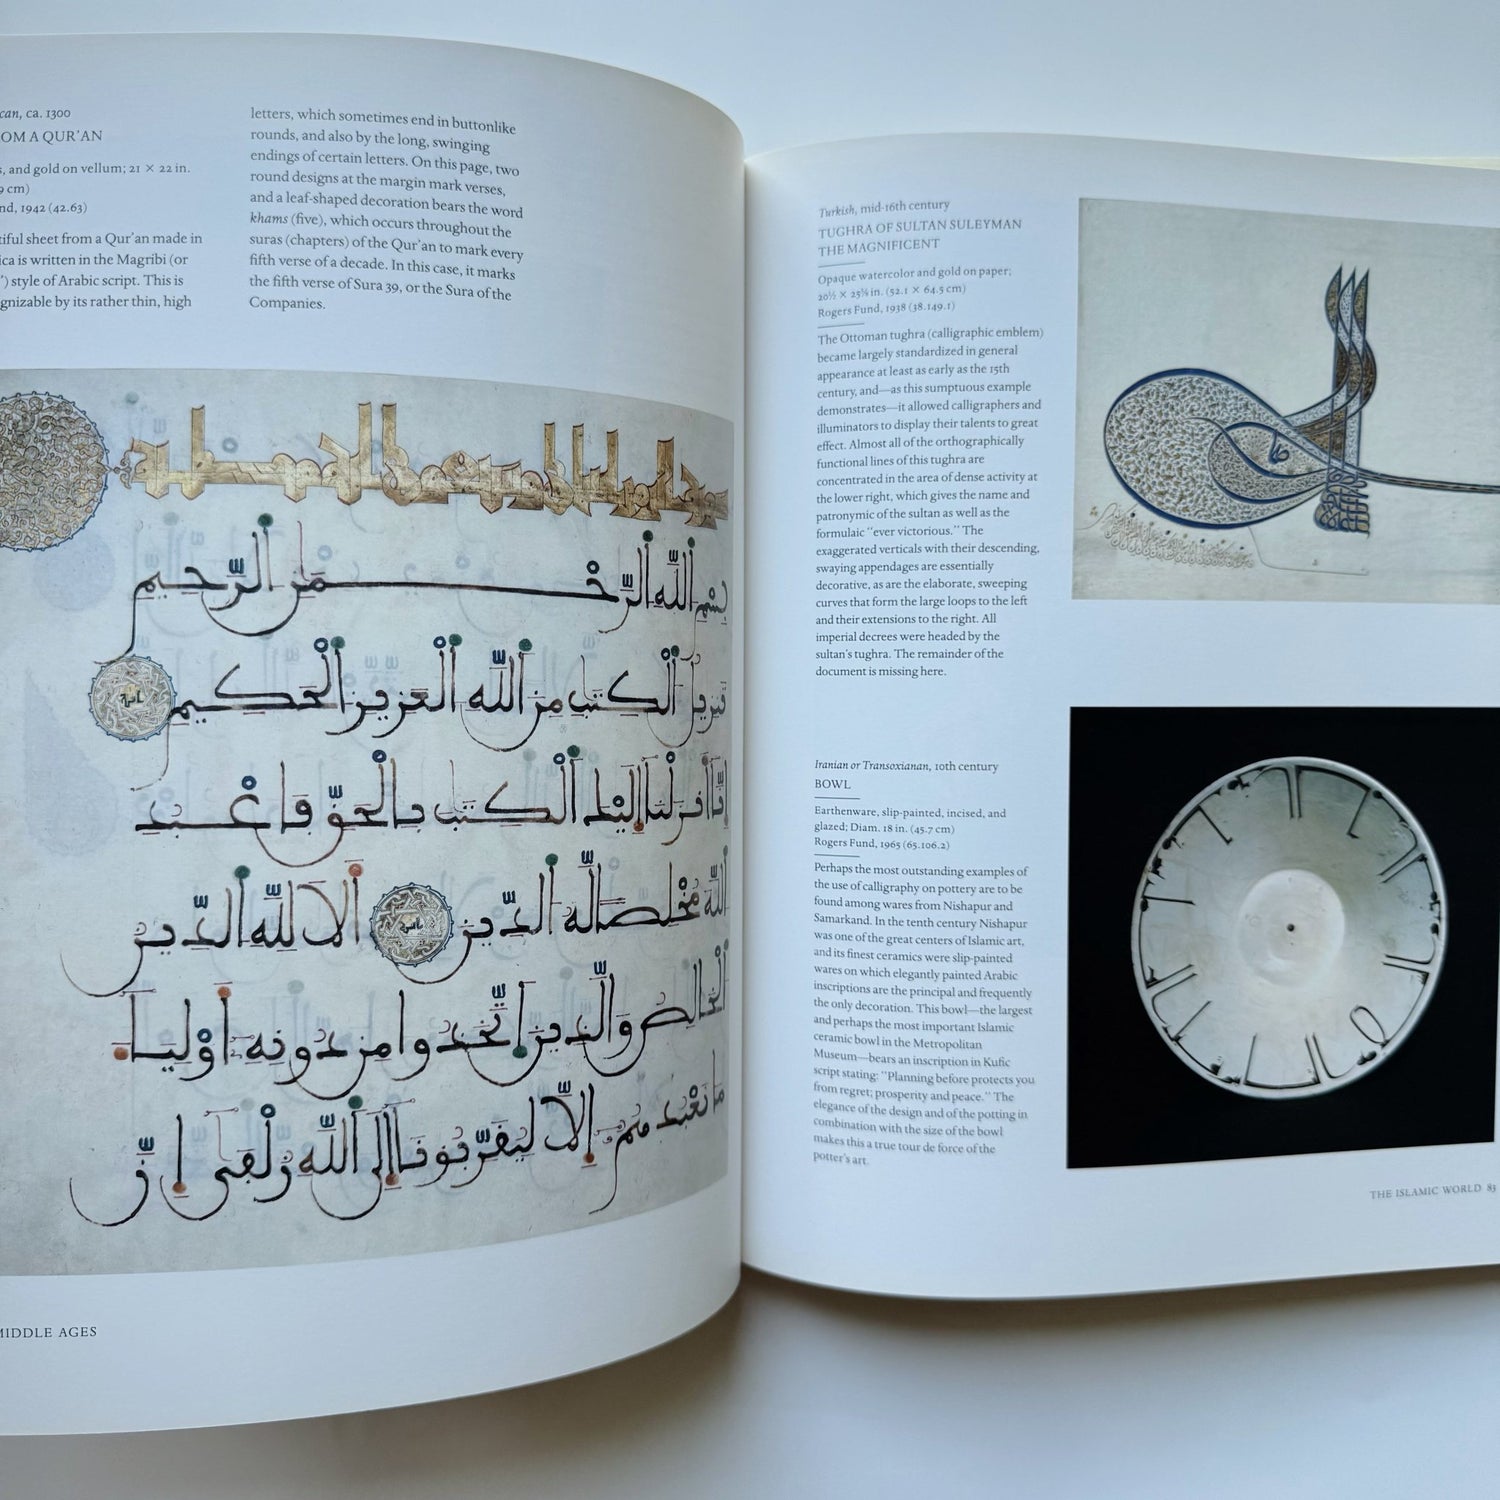 can, ca. 1300
OM A QUR'AN
s, and gold on vellum; 21 × 22 in.
9 cm)
nd, 1942 (42.63)
tiful sheet from a Qur'an made in
ica is written in the Magribi (or
') style of Arabic script. This is
gnizable by its rather thin, high
letters, which sometimes end in buttonlike
rounds, and also by the long, swinging
endings of certain letters. On this page, two
round designs at the margin mark verses,
and a leaf-shaped decoration bears the word
khams (five), which occurs throughout the
suras (chapters) of the Qur'an to mark every
fifth verse of a decade. In this case, it marks
the fifth verse of Sura 39, or the Sura of the
Companies.
بسم الله الرحمن الرحيم
تنزيل الكتب من الله العزيز الحكيم
إنا أنزلنا إليك الكتب بالحق فاعبد
الله مخلصا له الدين ألا لله الدين
الخالص والذين اتخذوا من دونه أوليا
ما نعبدهم إلا ليقربونا إلى الله زلفى إن
MIDDLE AGES
Turkish, mid-16th century
TUGHRA OF SULTAN SULEYMAN
THE MAGNIFICENT
Opaque watercolor and gold on paper;
20½ × 25⅜ in. (52.1 × 64.5 cm)
Rogers Fund, 1938 (38.149.1)
The Ottoman tughra (calligraphic emblem)
became largely standardized in general
appearance at least as early as the 15th
century, and—as this sumptuous example
demonstrates—it allowed calligraphers and
illuminators to display their talents to great
effect. Almost all of the orthographically
functional lines of this tughra are
concentrated in the area of dense activity at
the lower right, which gives the name and
patronymic of the sultan as well as the
formulaic "ever victorious." The
exaggerated verticals with their descending,
swaying appendages are essentially
decorative, as are the elaborate, sweeping
curves that form the large loops to the left
and their extensions to the right. All
imperial decrees were headed by the
sultan's tughra. The remainder of the
document is missing here.
Iranian or Transoxianan, 10th century
BOWL
Earthenware, slip-painted, incised, and
glazed; Diam. 18 in. (45.7 cm)
Rogers Fund, 1965 (65.106.2)
Perhaps the most outstanding examples of
the use of calligraphy on pottery are to be
found among wares from Nishapur and
Samarkand. In the tenth century Nishapur
was one of the great centers of Islamic art,
and its finest ceramics were slip-painted
wares on which elegantly painted Arabic
inscriptions are the principal and frequently
the only decoration. This bowl—the largest
and perhaps the most important Islamic
ceramic bowl in the Metropolitan
Museum—bears an inscription in Kufic
script stating: "Planning before protects you
from regret; prosperity and peace." The
elegance of the design and of the potting in
combination with the size of the bowl
makes this a true tour de force of the
potter's art.
THE ISLAMIC WORLD 83